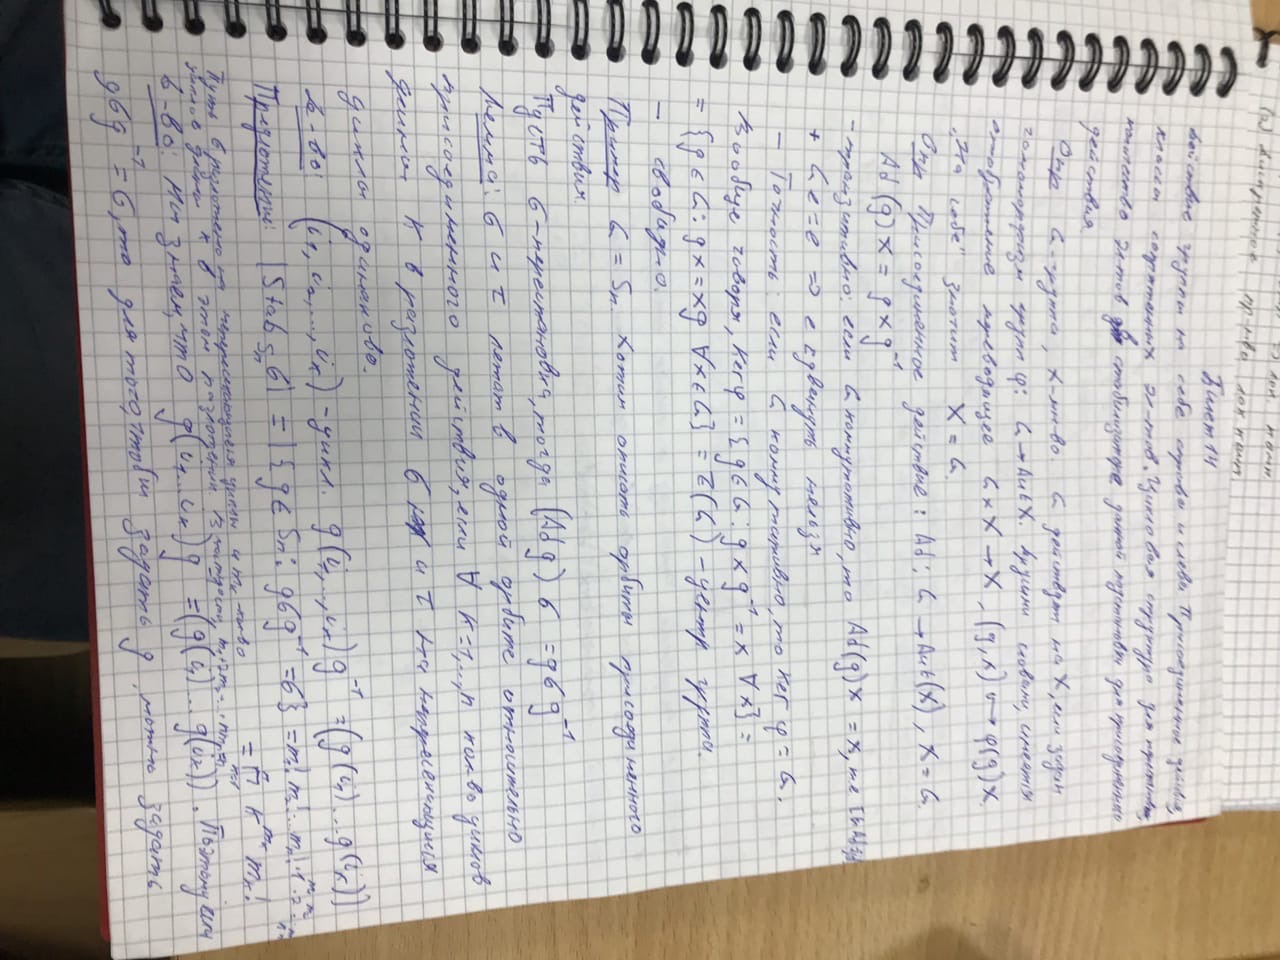 (2) Дискретное пр-тва лок комп.
Билет 14
Действие группы на себе справа и слева Присоединенное действие,
классы сопряженных эл-тов. Цикловая структура для перестановки,
количество эл-тов в стабилизаторе данной подстановки для присоединенного
действия.
Опр G-группа, X-мн-во. G действует на X, если задан
гомоморфизм групп φ: G→Aut X. Другими словами, имеется
отображение переводящее G×X→X, (g,x)↦φ(g)x.
„На себе" значит X = G.
Опр Присоединенное действие: Ad: G→Aut(X), X = G.
Ad(g)x = gxg⁻¹
- транзитивно: если G коммутативно, то Ad(g)x = x, те
+ Ge=e ⇒ e сдвинуть нельзя
- Точность: если G коммутативно, то Ker φ = G.
Вообще говоря, Ker φ = {g∈G: gxg⁻¹ = x ∀x} =
= {g∈G: gx=xg ∀x∈G} = Z(G) - центр группы.
- свободно.
Пример G = Sn. Хотим описать орбиты присоединенного
действия.
Пусть σ-перестановка, тогда (Ad g) σ = gσg⁻¹
Лемма: σ и τ лежат в одной орбите относительно
присоединенного действия, если ∀ k=1,...,n кол-во циклов
длины k в разложении σ и τ на непересекающиеся
циклы одинаково.
Д-во: (i₁, i₂,..., iₖ) - цикл. g(i₁,...,iₖ)g⁻¹ =(g(i₁)...g(iₖ))
Предложение: |Stab_Sn σ| = |{g∈Sn: gσg⁻¹ = σ} = m₁! m₂ ... mₙ!·1^m₁·2^m₂...
= ∏ₖ₌₁ⁿ k^mₖ mₖ!
Пусть σ разложено на непересекающиеся циклы и mₖ кол-во
циклов длины k в этом разложении. В частности, m₁+2m₂+...nmₙ=n
Д-во: Мы знаем, что g(i₁...iₖ)g =(g(i₁)...g(iₖ)). Поэтому если
gσg⁻¹ = σ, то для того, чтобы задать g, можно задать